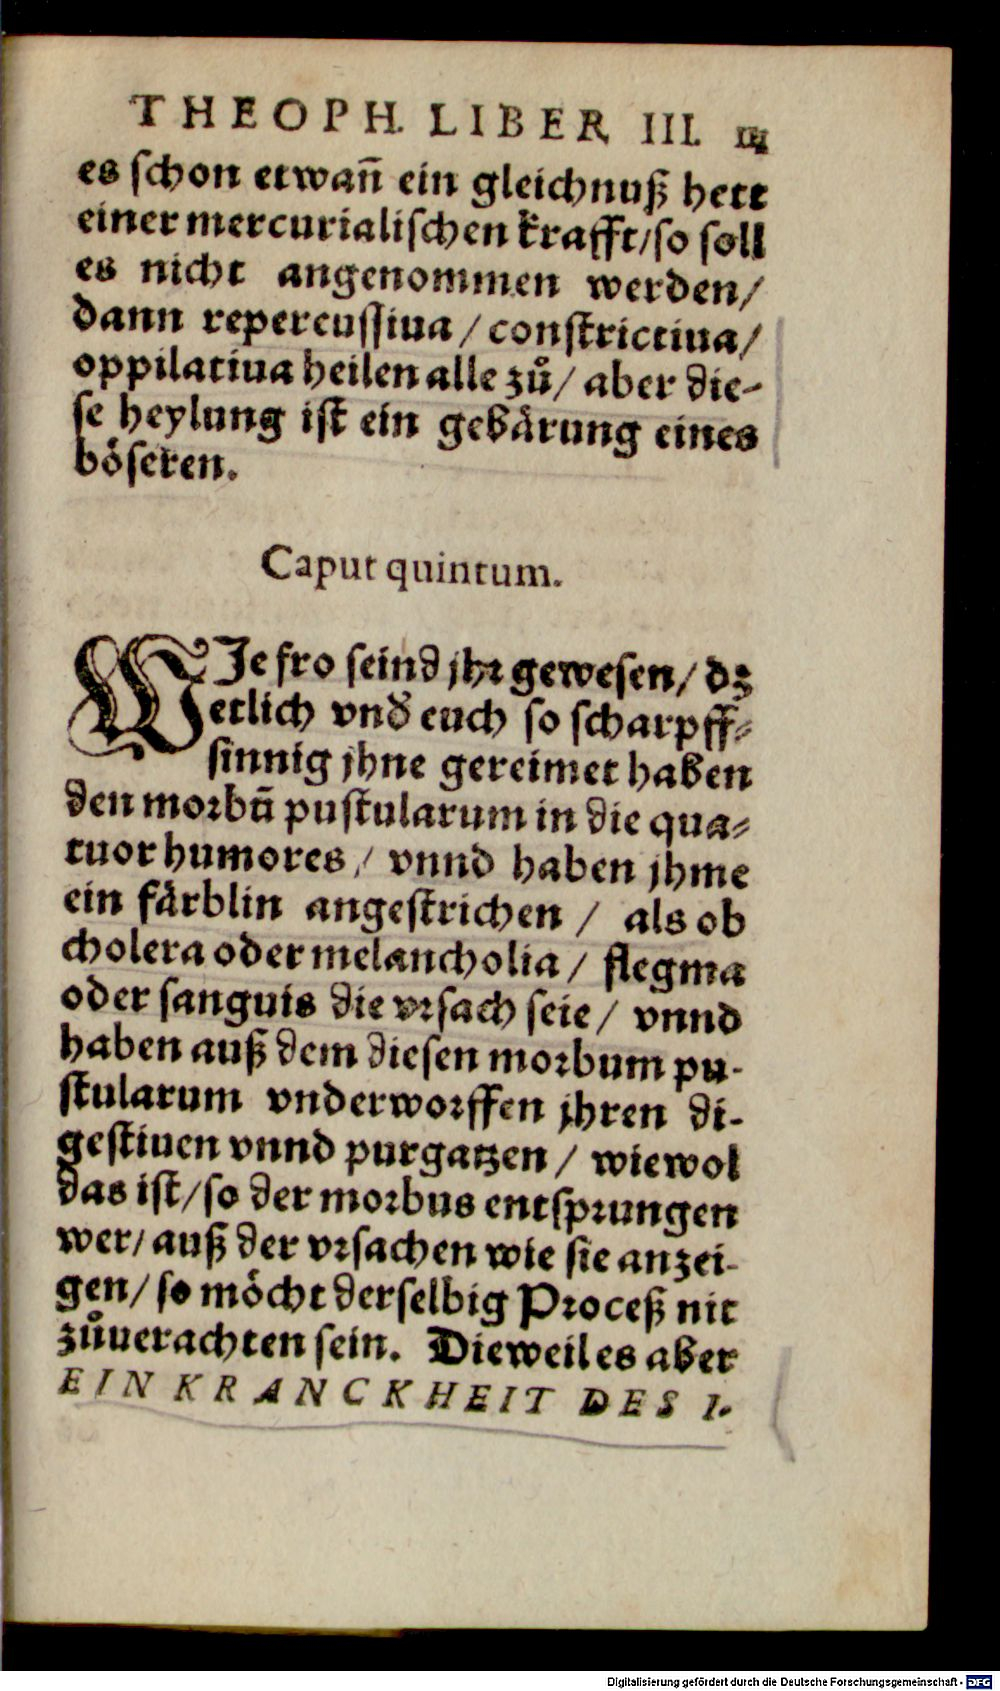 THEOPH. LIBER III. 111
es schon etwañ ein gleichnuß hett
einer mercurialischen krafft/so soll
es nicht angenommen werden/
dann repercussiua / constrictiua/
oppilatiua heilen alle zů/ aber die-
se heylung ist ein gebärung eines
böseren.
Caput quintum.
WJe fro seind jhr gewesen/ dz
etlich vnd euch so scharpff-
sinnig jhne gereimet haben
den morbū pustularum in die qua-
tuor humores / vnnd haben jhme
ein färblin angestrichen / als ob
cholera oder melancholia / flegma
oder sanguis die vrsach seie / vnnd
haben auß dem diesen morbum pu-
stularum vnderworffen jhren di-
gestiuen vnnd purgatzen / wiewol
das ist/so der morbus entsprungen
wer/ auß der vrsachen wie sie anzei-
gen/ so möcht derselbig Proceß nit
zůuerachten sein. Dieweil es aber
EIN KRANCKHEIT DES L.
Digitalisierung gefördert durch die Deutsche Forschungsgemeinschaft - DFG